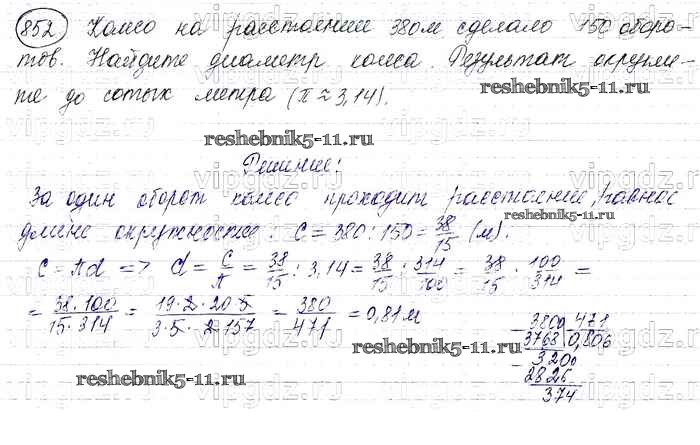 852 Колесо на расстоянии 380м сделало 150 оборо-
тов. Найдите диаметр колеса. Результат округли-
те до сотых метра (π ≈ 3,14).
reshebnik5-11.ru
reshebnik5-11.ru
Решение:
За один оборот колесо проходит расстояние, равное
reshebnik5-11.ru
длине окружности: C = 380 : 150 = 38/15 (м).
C = πd => d = C/π = 38/15 : 3,14 = 38/15 : 314/100 = 38/15 · 100/314 =
= 38·100/15·314 = 19·2·20·5/3·5·2·157 = 380/471 = 0,81м
3800 | 471
3768 | 0,806
3200
2826
374
reshebnik5-11.ru
reshebnik5-11.ru